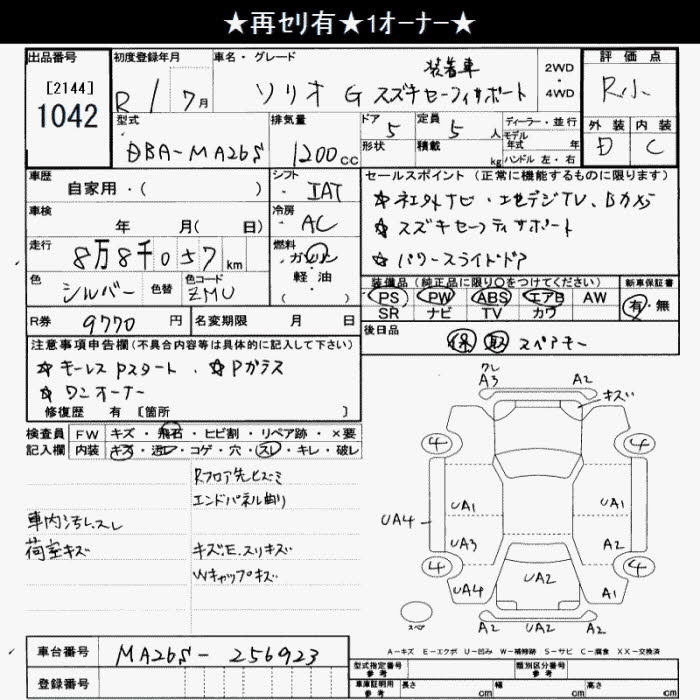 ★再セリ有★1オーナー★
出品番号 初度登録年月 車名・グレード 装着車 2WD・4WD 評価点
[2144]
1042
R 1 7月 ソリオ G スズキセーフティサポート R小
型式 排気量 ドア 定員 ディーラー・並行 外装 内装
DBA-MA26S 1200cc 5 5人 モデル年式 年 D C
形状 積載 kg ハンドル 左・右
車歴 シフト セールスポイント(正常に機能するものに限ります)
自家用・( ) IAT ☆社外ナビ・フルセグTV、Bカメラ
車検 冷房 ☆スズキセーフティサポート
年 月( 日) AC
走行 燃料 ☆パワースライドドア
8万8千057km ガソリン
軽油
( )
色 シルバー 色替 色コード ZMU
装備品(純正品に限り○をつけてください) 新車保証書
PS PW ABS エアB AW 有・無
SR ナビ TV カワ
R券 9770円 名変期限 月 日
後日品
保 取 スペアキー
注意事項申告欄(不具合内容等は具体的に記入して下さい)
☆キーレスPスタート、☆Pガラス
☆ワンオーナー
修復歴 有 [箇所 ]
検査員 FW キズ・飛石・ヒビ割・リペア跡・×要
記入欄 内装 キズ・汚レ・コゲ・穴・スレ・キレ・破レ
Rフロア先ヒズミ
エンドパネル曲り
車内汚レスレ
荷室キズ キズE.スリキズ
Wキャップキズ
クレ
A3 A2
キズ
4 4
UA1 UA1
UA4
UA3 A2
4 4
UA4 UA2 A1
スペア A2 UA2 A2
A-キズ E-エクボ U-凹み W-補修跡 S-サビ C-腐食 XX-交換済
車台番号 MA26S-256923
登録番号
型式指定番号 参考 類別区分番号 参考
車庫証明用 参考 長さ cm 幅 cm 高さ cm